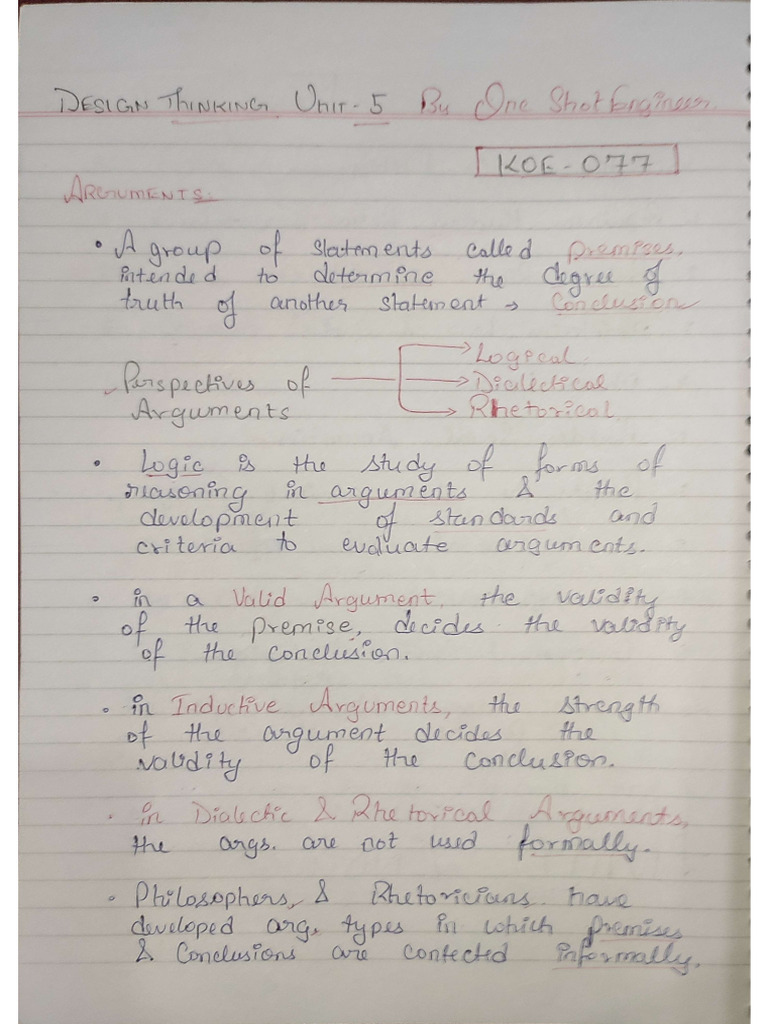 DESIGN THINKING UNIT-5 By One Shot Engineer.
KOE-077
ARGUMENTS:
• A group of statements called premises,
intended to determine the degree of
truth of another statement → Conclusion
Perspectives of
Arguments
Logical
Dialectical
Rhetorical
• Logic is the study of forms of
reasoning in arguments & the
development of standards and
criteria to evaluate arguments.
• in a Valid Argument, the validity
of the premise, decides the validity
of the conclusion.
• in Inductive Arguments, the strength
of the argument decides the
validity of the conclusion.
• in Dialectic & Rhetorical Arguments,
the args. are not used formally.
• Philosophers, & Rhetoricians have
developed arg. types in which premises
& Conclusions are contected informally.